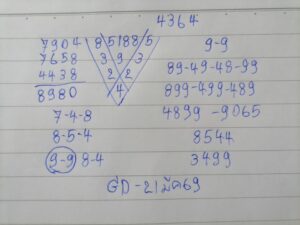 4364
7904 8 5 1 8 8 5 9-9
7658 3 9 3 89-49-48-99
4438 2 2 899-499-489
8980 4 4899-9065
7-4-8 8544
8-5-4 3499
9-9 8-4
GD-21มีค69